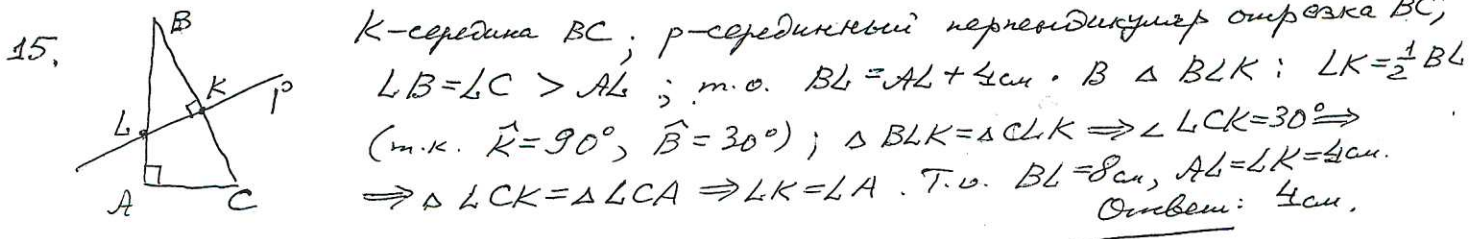 15.
B
K
P
L
A
C
K-середина BC; p-серединный перпендикуляр отрезка BC,
LB=LC > AL ; т.о. BL=AL+4см. В △ BLK : LK=½BL
(т.к. K̂=90°, B̂=30°) ; △ BLK=△CLK ⇒∠ LCK=30°⇒
⇒△ LCK=△LCA ⇒LK=LA. Т.о. BL=8см, AL=LK=4см.
Ответ: 4см.